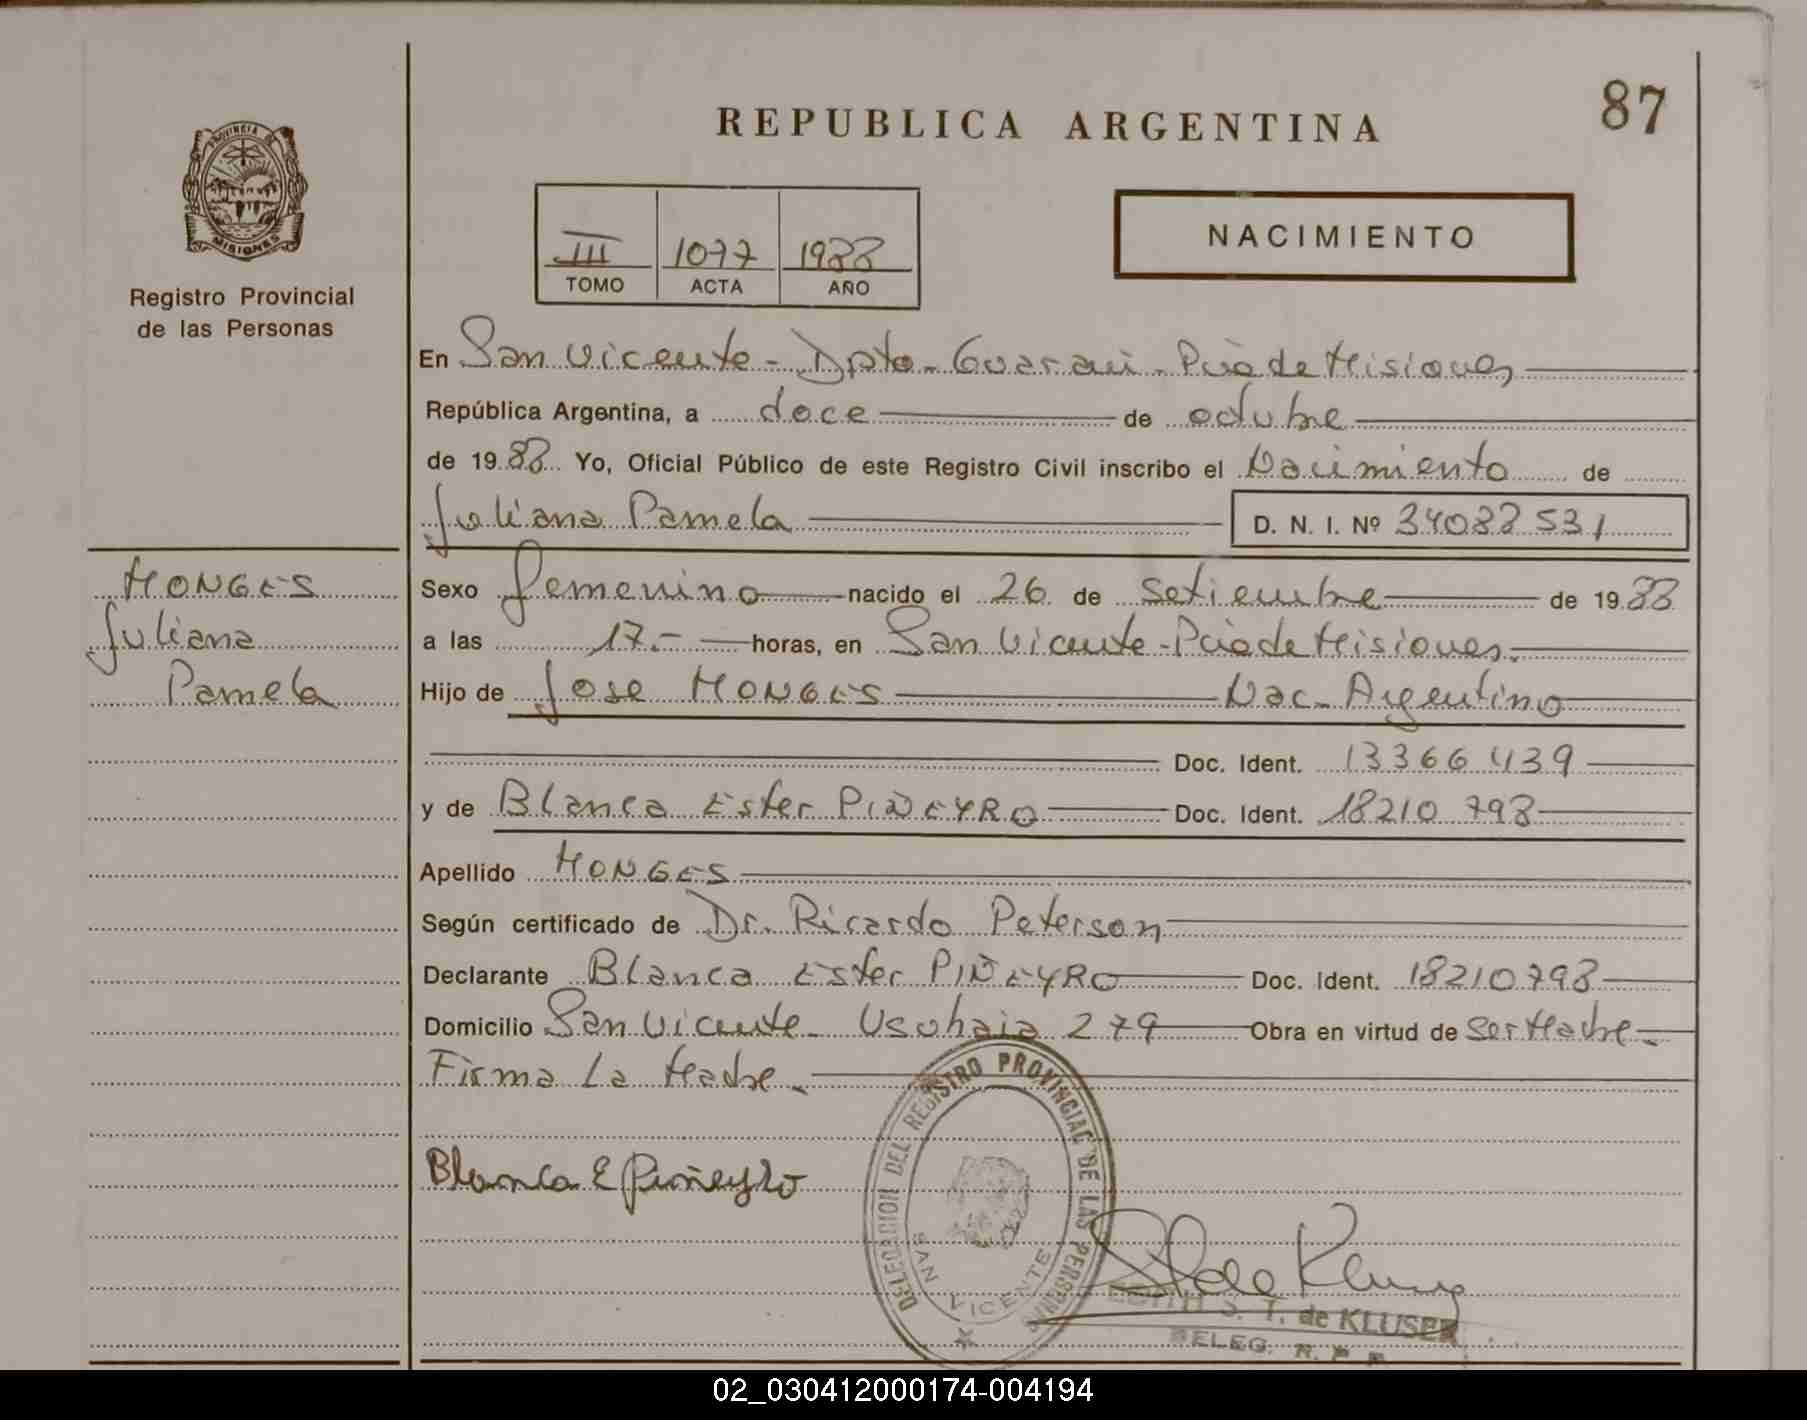 87
REPUBLICA ARGENTINA
PROVINCIA DE
MISIONES
Registro Provincial
de las Personas
III 1077 1988
TOMO ACTA AÑO
NACIMIENTO
En San Vicente - Dpto - Guarani - Pcia de Misiones
República Argentina, a doce de octubre
de 1988 Yo, Oficial Público de este Registro Civil inscribo el Nacimiento de
Juliana Pamela D. N. I. Nº 34088531
MONGES
Juliana
Pamela
Sexo femenino nacido el 26 de setiembre de 1988
a las 17.- horas, en San Vicente - Pcia de Misiones.
Hijo de Jose MONGES Nac. Argentino
Doc. Ident. 13366439
y de Blanca Ester PIÑEYRO Doc. Ident. 18210798
Apellido MONGES
Según certificado de Dr. Ricardo Peterson
Declarante Blanca Ester PIÑEYRO Doc. Ident. 18210798
Domicilio San Vicente - Usuhaia 279 Obra en virtud de ser Madre -
Firma La Madre -
Blanca E Piñeyro
DELEGACION DEL REGISTRO PROVINCIAL DE LAS PERSONAS
SAN VICENTE
EDITH S. T. de KLUSER
DELEG. R. P. P.
02_030412000174-004194